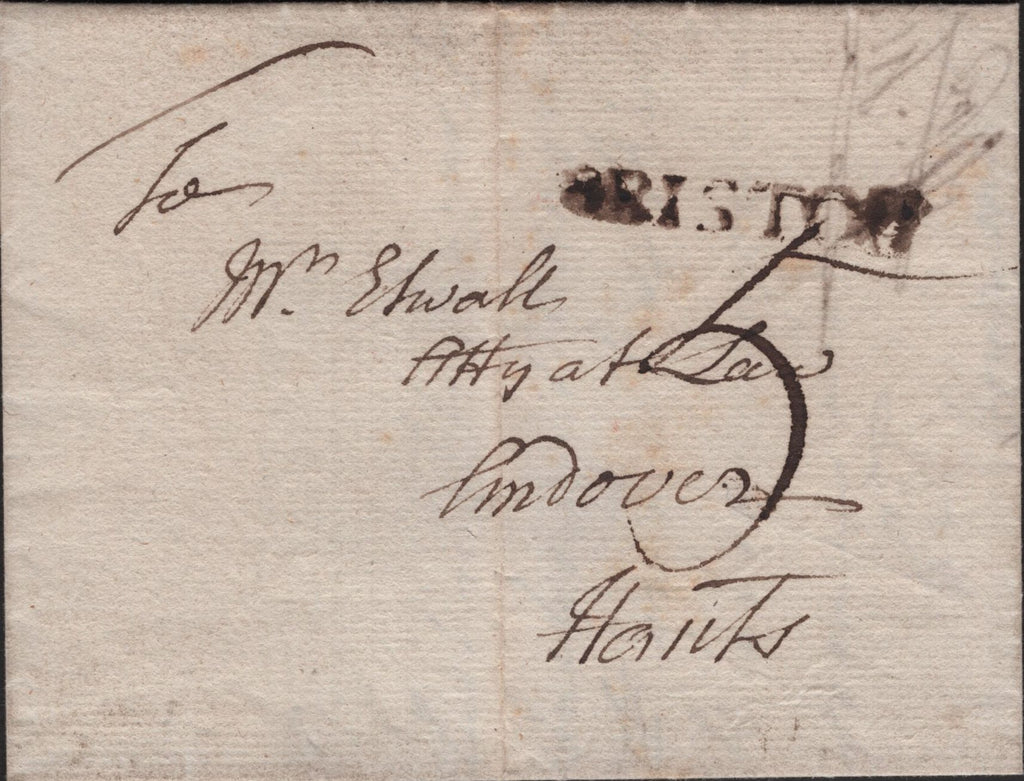 To
BRISTOL
Mr. Elwall
Atty at Law
5
Andover
Hants